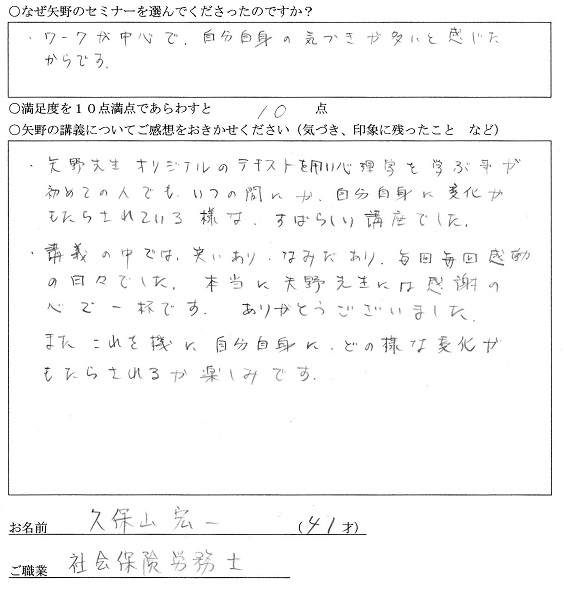 ○なぜ矢野のセミナーを選んでくださったのですか？
・ワークが中心で、自分自身の気づきが多いと感じた
からです。
○満足度を１０点満点であらわすと　10　点
○矢野の講義についてご感想をおきかせください（気づき、印象に残ったこと　など）
・矢野先生オリジナルのテキストを用い心理学を学ぶ事が
初めての人でも、いつの間にか、自分自身に変化が
もたらされている様な、すばらしい講座でした。
・講義の中では、笑いあり、なみだあり、毎回毎回感動
の日々でした。本当に矢野先生には感謝の
心で一杯です。ありがとうございました。
また これを機に 自分自身に、どの様な変化が
もたらされるか楽しみです。
お名前　久保山 宏一　（41才）
ご職業　社会保険労務士